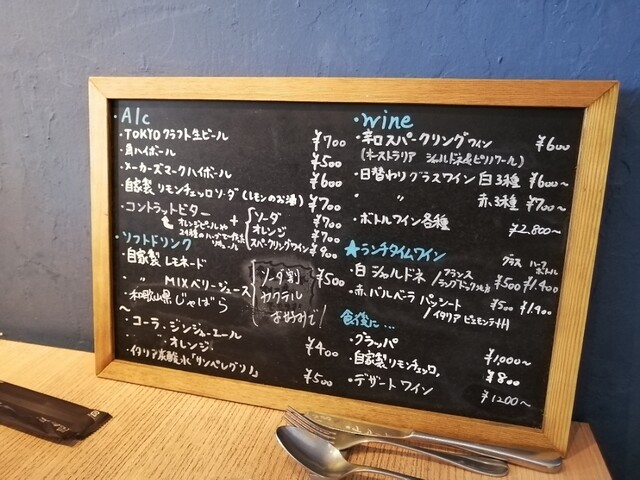 ・Alc
・TOKYOクラフト生ビール ¥700
・角ハイボール ¥500
・メーカーズマークハイボール ¥600
・自家製 リモンチェッロソーダ(レモンのお酒) ¥700
・コントラットビター + ソーダ ¥700
オレンジピールや オレンジ ¥700
24種のハーブで作る スパークリングワイン ¥900
リキュール
・ソフトドリンク
・自家製 レモネード ¥500
・ 〃 MIXベリージュース ソーダ割
・和歌山県じゃばら カクテル
お好みで!
〜
・コーラ・ジンジャーエール
・オレンジ ¥400
・イタリア炭酸水「サンペレグリノ」 ¥500
・wine
・辛口スパークリングワイン ¥600
(オーストラリア シャルドネ&ピノノワール)
・日替わりグラスワイン 白3種 ¥600〜
〃 赤3種 ¥700〜
・ボトルワイン各種 ¥2,800〜
★ランチタイムワイン グラス ハーフボトル
・白 シャルドネ /フランス ラングドック地方 ¥500 ¥1,400
・赤、バルベーラ パッシート ¥500 ¥1,400
/イタリア ピエモンテ州
食後に…
・グラッパ ¥1,000〜
・自家製リモンチェッロ ¥800
・デザートワイン ¥1200〜